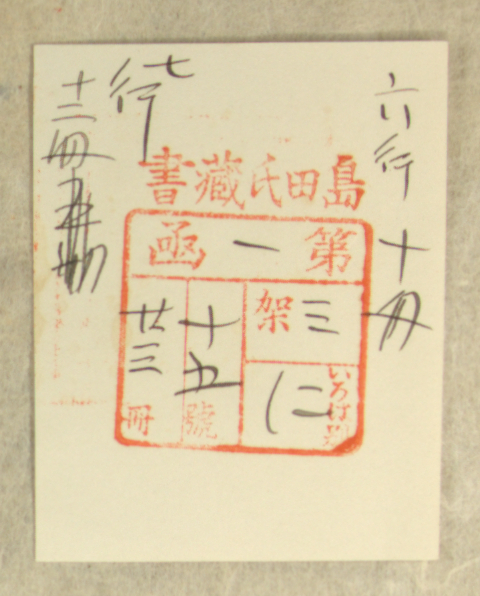 六行十冊
島田氏藏書
第一函
三架
いろは別
に
十五號
廿三冊
七行
十二冊